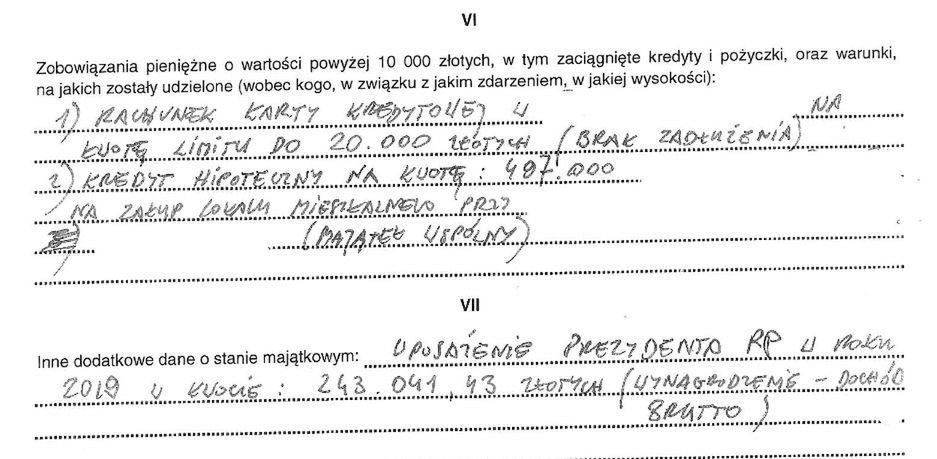 VI
Zobowiązania pieniężne o wartości powyżej 10 000 złotych, w tym zaciągnięte kredyty i pożyczki, oraz warunki,
na jakich zostały udzielone (wobec kogo, w związku z jakim zdarzeniem, w jakiej wysokości):
1) RACHUNEK KARTY KREDYTOWEJ NA
KWOTĘ LIMITU DO 20.000 ZŁOTYCH (BRAK ZADŁUŻENIA)
2) KREDYT HIPOTECZNY NA KWOTĘ: 497.000
NA ZAKUP LOKALU MIESZKALNEGO PRZY
(MAJĄTEK WSPÓLNY)
VII
Inne dodatkowe dane o stanie majątkowym: UPOSAŻENIE PREZYDENTA RP W ROKU
2019 W KWOCIE: 243.041,43 ZŁOTYCH (WYNAGRODZENIE – DOCHÓD
BRUTTO)